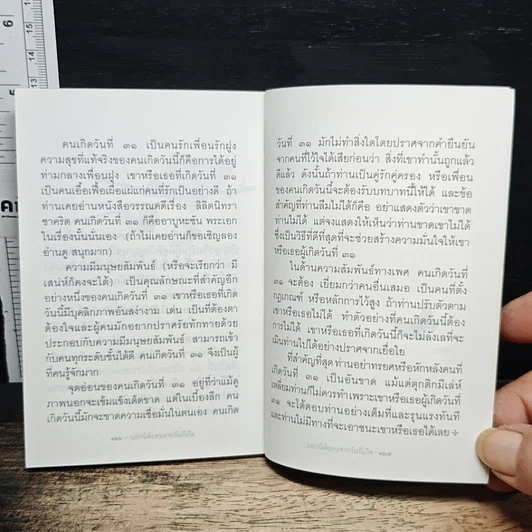 คนเกิดวันที่ ๓๑ เป็นคนรักเพื่อนรักฝูง
ความสุขที่แท้จริงของคนเกิดวันนี้ก็คือการได้อยู่
ท่ามกลางเพื่อนฝูง เขาหรือเธอที่เกิดวันที่ ๓๑
เป็นคนเอื้อเฟื้อเผื่อแผ่แก่คนที่รักเป็นอย่างดี ถ้า
ท่านเคยอ่านหนังสือวรรณคดีเรื่อง ลิลิตนิทรา
ชาคริต คนเกิดวันที่ ๓๑ ก็คืออาบูหะซัน พระเอก
ในเรื่องนั้นนั่นเอง (ถ้าไม่เคยอ่านก็ขอเชิญลอง
อ่านดู สนุกมาก)
ความมีมนุษยสัมพันธ์ (หรือจะเรียกว่า มี
เสน่ห์ก็คงจะได้) เป็นคุณลักษณะที่สำคัญอีก
อย่างหนึ่งของคนเกิดวันที่ ๓๑ เขาหรือเธอที่เกิด
วันนี้มีบุคลิกภาพอันสง่างาม เด่น เป็นที่ต้องตา
ต้องใจและผู้คนมักอยากปราศรัยทักทายด้วย
ประกอบกับความมีมนุษยสัมพันธ์ สามารถเข้า
กับคนทุกระดับชั้นได้ดี คนเกิดวันที่ ๓๑ จึงเป็นผู้
ที่คนรู้จักมาก
จุดอ่อนของคนเกิดวันที่ ๓๑ อยู่ที่ว่าแม้ดู
ภาพนอกจะเข้มแข็งเด็ดขาด แต่ในเบื้องลึก คน
เกิดวันนี้มักจะขาดความเชื่อมั่นในตนเอง คนเกิด
บอกนิสัยคนจากวันที่เกิด
วันที่ ๓๑ มักไม่ทำสิ่งใดโดยปราศจากคำยืนยัน
จากคนที่ไว้ใจได้เสียก่อนว่า สิ่งที่เขาทำนั้นถูกแล้ว
ดีแล้ว ดังนั้นถ้าท่านเป็นคู่รักคู่ครอง หรือเพื่อน
ของคนเกิดวันนี้จะต้องรับบทบาทนี้ให้ได้ และข้อ
สำคัญที่ท่านลืมไม่ได้ก็คือ อย่าแสดงตัวว่าเขาขาด
ท่านไม่ได้ แต่จงแสดงให้เห็นว่าท่านขาดเขาไม่ได้
ซึ่งเป็นวิธีที่ดีที่สุดที่จะช่วยสร้างความมั่นใจให้เขา
หรือเธอผู้เกิดวันที่ ๓๑
ในด้านความสัมพันธ์ทางเพศ คนเกิดวันที่
๓๑ จะต้อง เยี่ยมกว่าคนอื่นเสมอ เป็นคนที่ตั้ง
กฎเกณฑ์ หรือหลักการไว้สูง ถ้าท่านปรับตัวตาม
เขาหรือเธอไม่ได้ ทำตัวอย่างที่คนเกิดวันนี้ต้อง
การไม่ได้ เขาหรือเธอที่เกิดวันนี้ก็จะไม่ลังเลที่จะ
เมินท่านไปได้อย่างปราศจากเยื่อใย
ที่สำคัญที่สุด ท่านอย่าทรยศหรือหักหลังคนที่
เกิดวันที่ ๓๑ เป็นอันขาด แม้แต่ตุกติกมีเล่ห์
เหลี่ยมท่านก็ไม่ควรทำเพราะเขาหรือเธอที่เกิดวันที่
๓๑ จะโต้ตอบท่านอย่างเต็มที่และรุนแรงทันที
และท่านไม่มีทางที่จะเอาชนะเขาหรือเธอได้เลย
บอกนิสัยคนจากวันที่เกิด